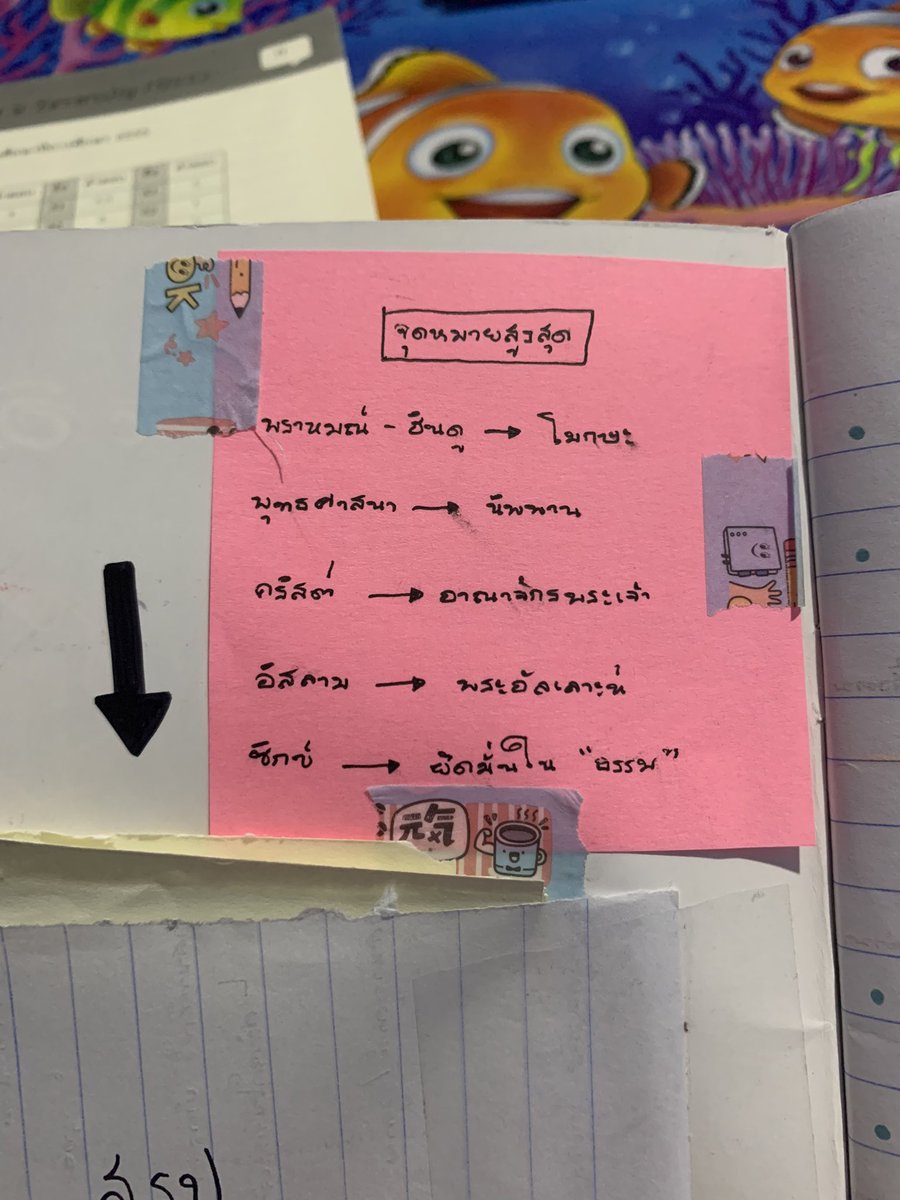 จุดหมายสูงสุด
พราหมณ์ - ฮินดู → โมกษะ
พุทธศาสนา → นิพพาน
คริสต์ → อาณาจักรพระเจ้า
อิสลาม → พระอัลเลาะห์
ซิกข์ → ยึดมั่นใน "ธรรม"
OK
元気
สรุป